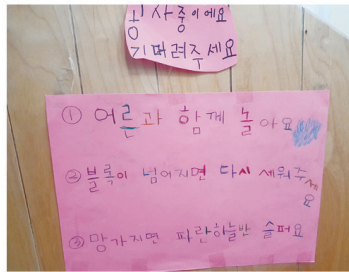 공사중이에요
기다려주세요
① 어른과 함께 놀아요
② 블록이 넘어지면 다시 세워주세요
③ 망가지면 파란하늘반 슬퍼요